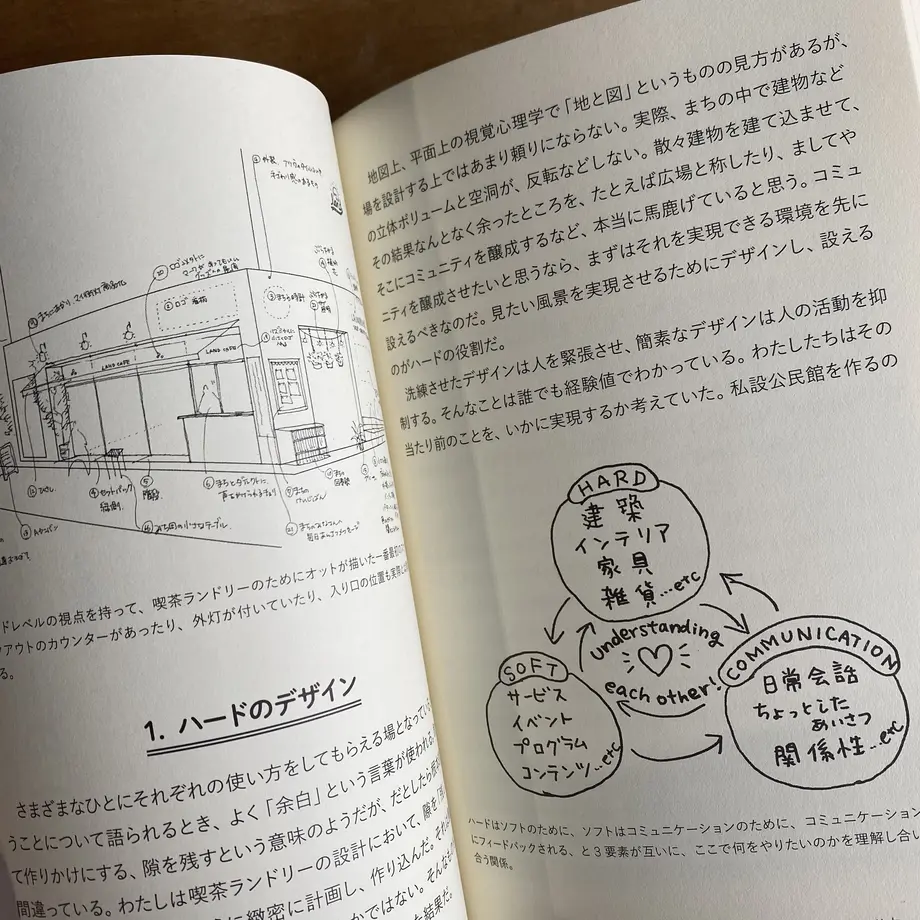 LAND CAFE
LAND CAFE
ロゴ看板
ひさし
セットバック
縁側
階段
ドレベルの視点を持って、喫茶ランドリーのためにオットが描いた一番最初の
アウトのカウンターがあったり、外灯が付いていたり、入り口の位置も実際と
る。
1. ハードのデザイン
さまざまなひとにそれぞれの使い方をしてもらえる場となってい
うことについて語られるとき、よく「余白」という言葉が使われる。
て作りかけにする、隙を残すという意味のようだが、だとしたら
間違っている。わたしは喫茶ランドリーの設計において、隙を
に緻密に計画し、作り込んだ。それ
かではない。そんな
た結果だ。
地図上、平面上の視覚心理学で「地と図」というものの見方があるが、
場を設計する上ではあまり頼りにならない。実際、まちの中で建物など
の立体ボリュームと空洞が、反転などしない。散々建物を建て込ませて、
その結果なんとなく余ったところを、たとえば広場と称したり、ましてや
そこにコミュニティを醸成するなど、本当に馬鹿げていると思う。コミュ
ニティを醸成させたいと思うなら、まずはそれを実現できる環境を先に
設えるべきなのだ。見たい風景を実現させるためにデザインし、設える
のがハードの役割だ。
洗練させたデザインは人を緊張させ、簡素なデザインは人の活動を抑
制する。そんなことは誰でも経験値でわかっている。わたしたちはその
当たり前のことを、いかに実現するか考えていた。私設公民館を作るの
HARD
建築
インテリア
家具
雑貨...etc
understanding
each other!
SOFT
サービス
イベント
プログラム
コンテンツ...etc
COMMUNICATION
日常会話
ちょっとした
あいさつ
関係性...etc
ハードはソフトのために、ソフトはコミュニケーションのために、コミュニケーション
にフィードバックされる、と3要素が互いに、ここで何をやりたいのかを理解し合い
合う関係。